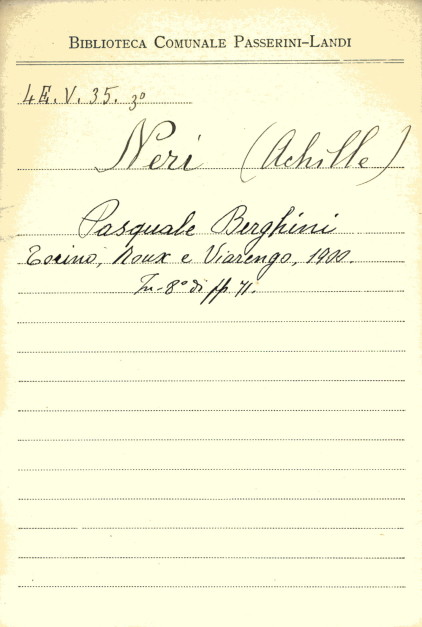 BIBLIOTECA COMUNALE PASSERINI-LANDI
4E. V. 35. 3º
Neri (Achille)
Pasquale Berghini
Torino, Roux e Viarengo, 1900.
In-8º di pp 71.